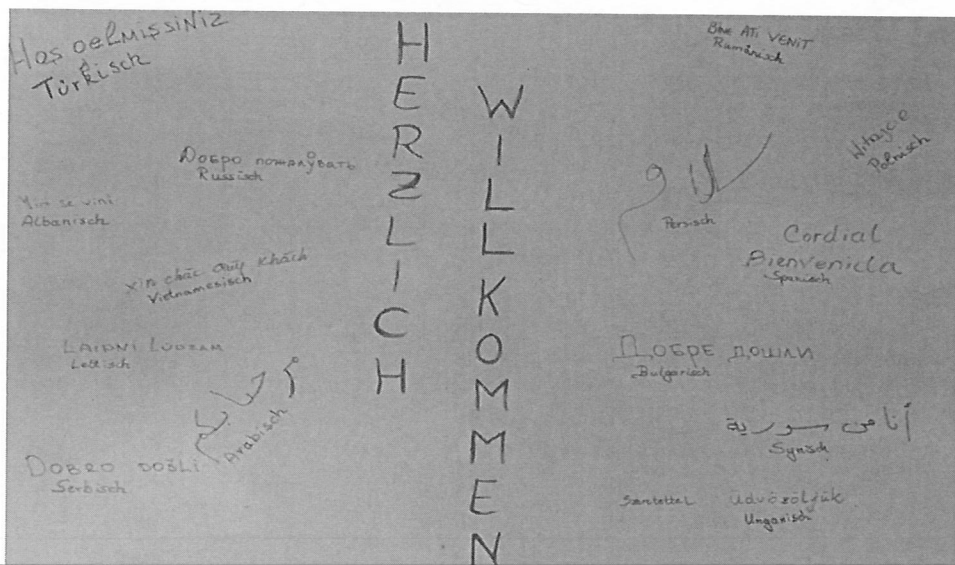 Hoş gelmişsiniz
Türkisch
Добро пожаловать
Russisch
Albanisch
xin chào quý khách
Vietnamesisch
LAIPNI LŪDZAM
Lettisch
مرحبا بكم
Arabisch
DOBRO DOŠLI
Serbisch
HERZLICH
WILLKOMMEN
Bine ATI VENIT
Rumänisch
Witajcie
Polnisch
سلام
Persisch
Cordial
Bienvenida
Spanisch
ДОБРЕ ДОШЛИ
Bulgarisch
أنا من سورية
Syrisch
üdvözöljük
Ungarisch